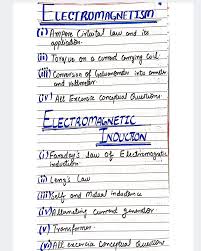 ELECTROMAGNETISM
(i) Ampere Circuital law and its
application.
(ii) Torque on a current carrying coil
(iii) Conversion of Galvanometer into ammeter
and voltmeter
(iv) All Excercise Conceptual Questions.
ELECTROMAGNETIC
INDUCTION
(i) Faraday's law of Electromagnetic
induction.
(ii) Lenz's Law
(iii) Self and Mutual inductance
(iv) Alternating current generator
(v) Transformer
(vi) All excercise Conceptual Questions